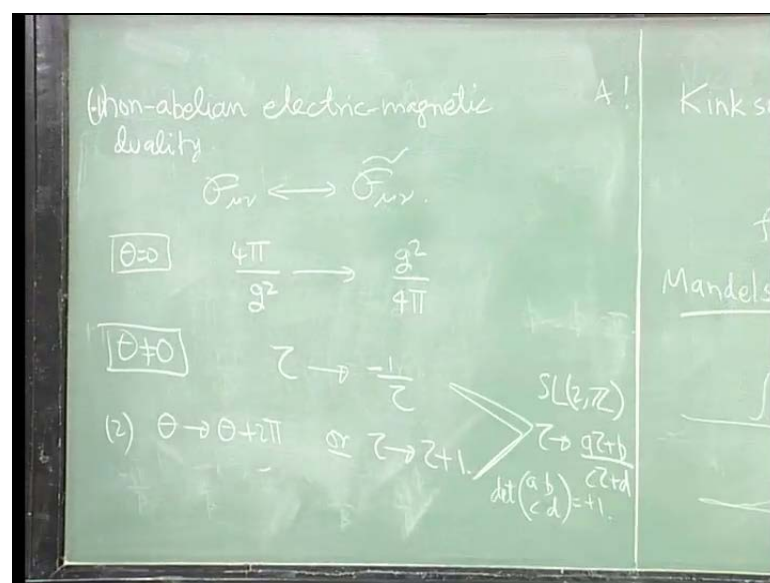 (1) non-abelian electric-magnetic
duality.
A!
θ=0 4π/g² → g²/4π
θ≠0 τ → -1/τ
(2) θ → θ+2π or τ → τ+1.
SL(2,ℤ)
τ → aτ+b/cτ+d
det(a b c d) = +1.
Kink s
f
Mandels
∫